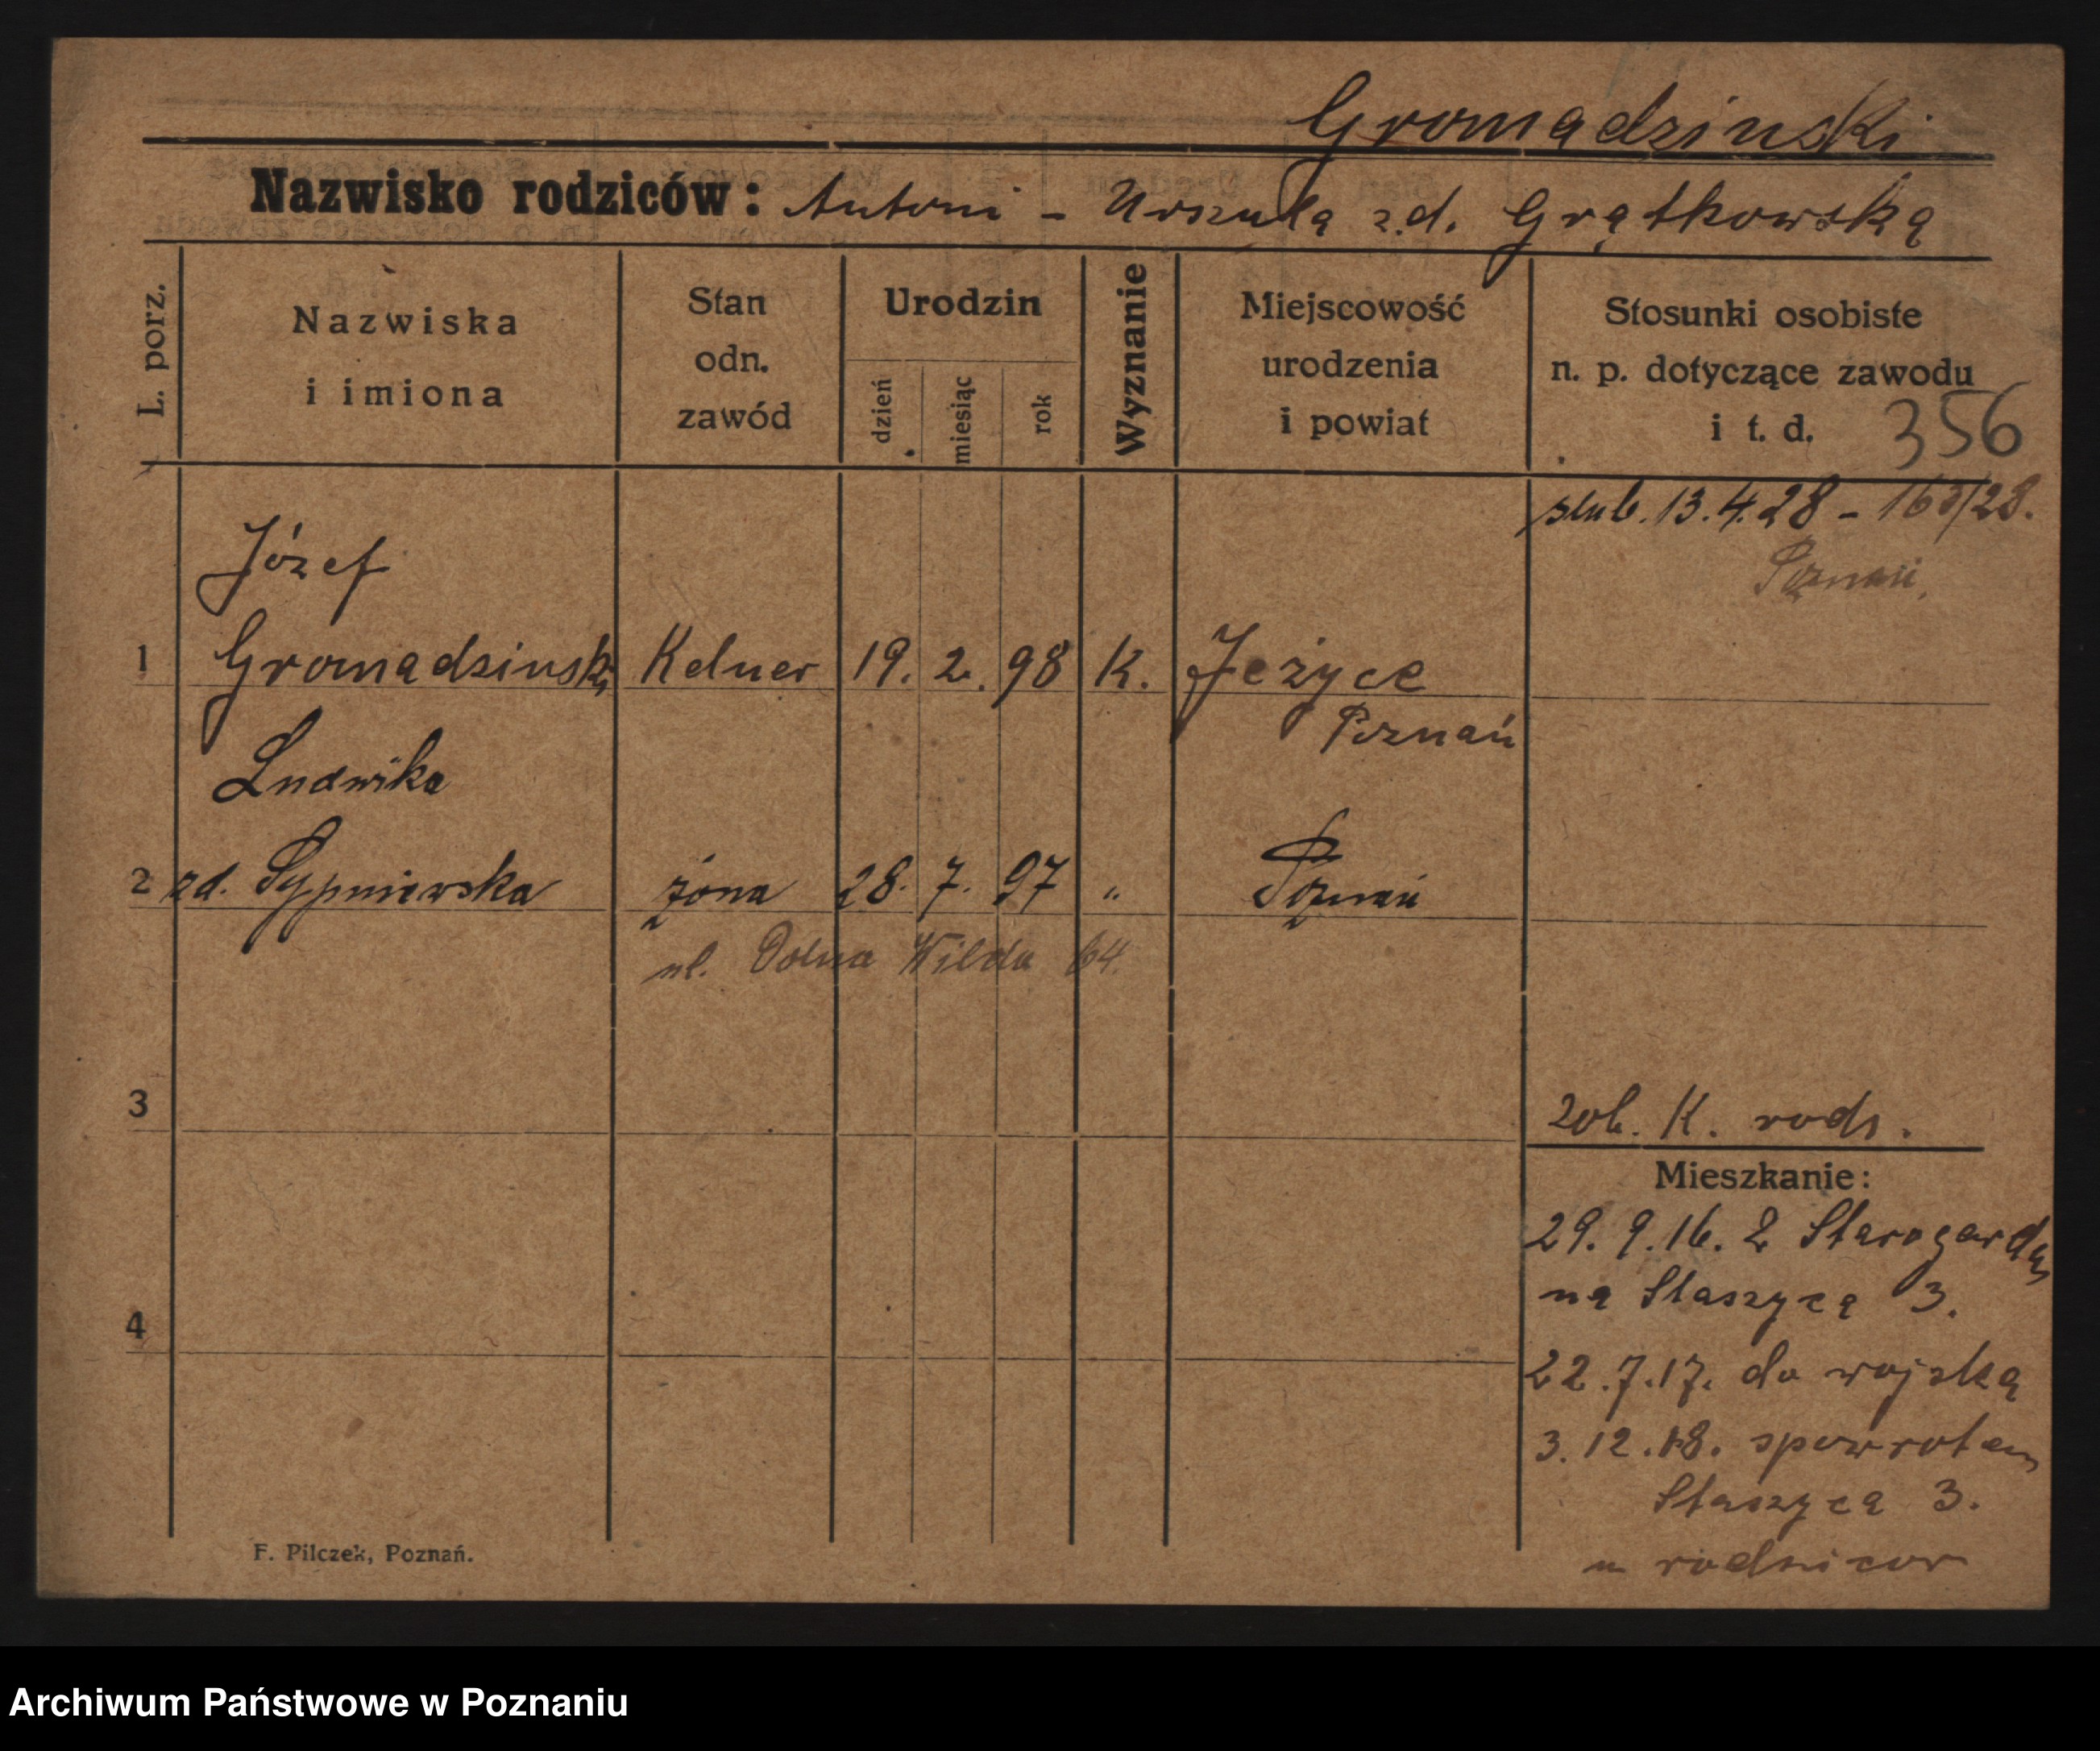 Gromadzinski
Nazwisko rodziców: Antoni - Urszula z.d. Grątkowska
L. porz.
Nazwiska
i imiona
Stan
odn.
zawód
Urodzin
dzień
miesiąc
rok
Wyznanie
Miejscowość
urodzenia
i powiat
Stosunki osobiste
n. p. dotyczące zawodu
i t. d. 356
slub. 13.4.28 - /28.
Poznań,
Józef
1 Gromadzinski Kelner 19. 2. 98 K. Jeżyce
Poznań
Ludwika
2 zd. Sypniewska żona 28. 7. 97 " Poznań
ul. Dolna Wilda 64.
3
zob. K. rodz.
Mieszkanie:
29. 9. 16. z Starogardu
na Staszyca 3.
4
22.7.17. do wojska
3.12.18. spowrotem
Staszyca 3.
u rodzicow
F. Pilczek, Poznań.
Archiwum Państwowe w Poznaniu